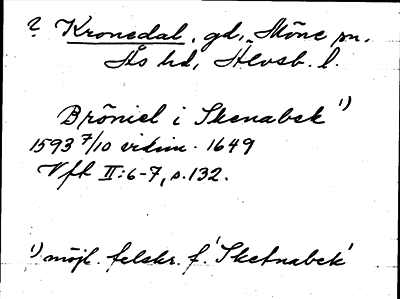 ? Kronedal, gd, Möne sn,
Ås hd, Älvsb. l.
Bröniel i Skenabek 1)
1593 7/10 vidim. 1649
Vfk II:6-7, s. 132.
1) möjl. felskr. f. 'Sketnabek'